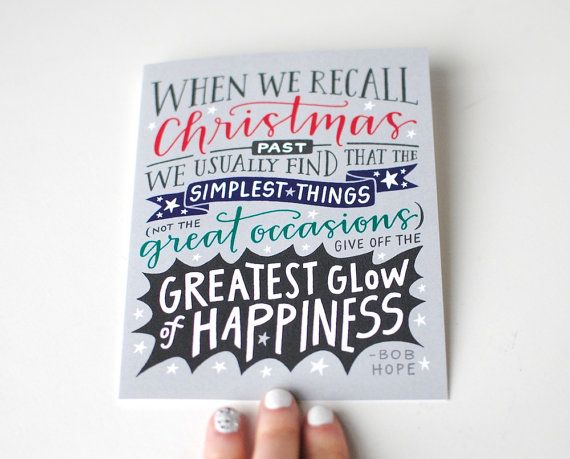 WHEN WE RECALL
Christmas
PAST
WE USUALLY FIND THAT THE
SIMPLEST THINGS
(NOT THE
great occasions)
GIVE OFF THE
GREATEST GLOW
of HAPPINESS
-BOB
HOPE